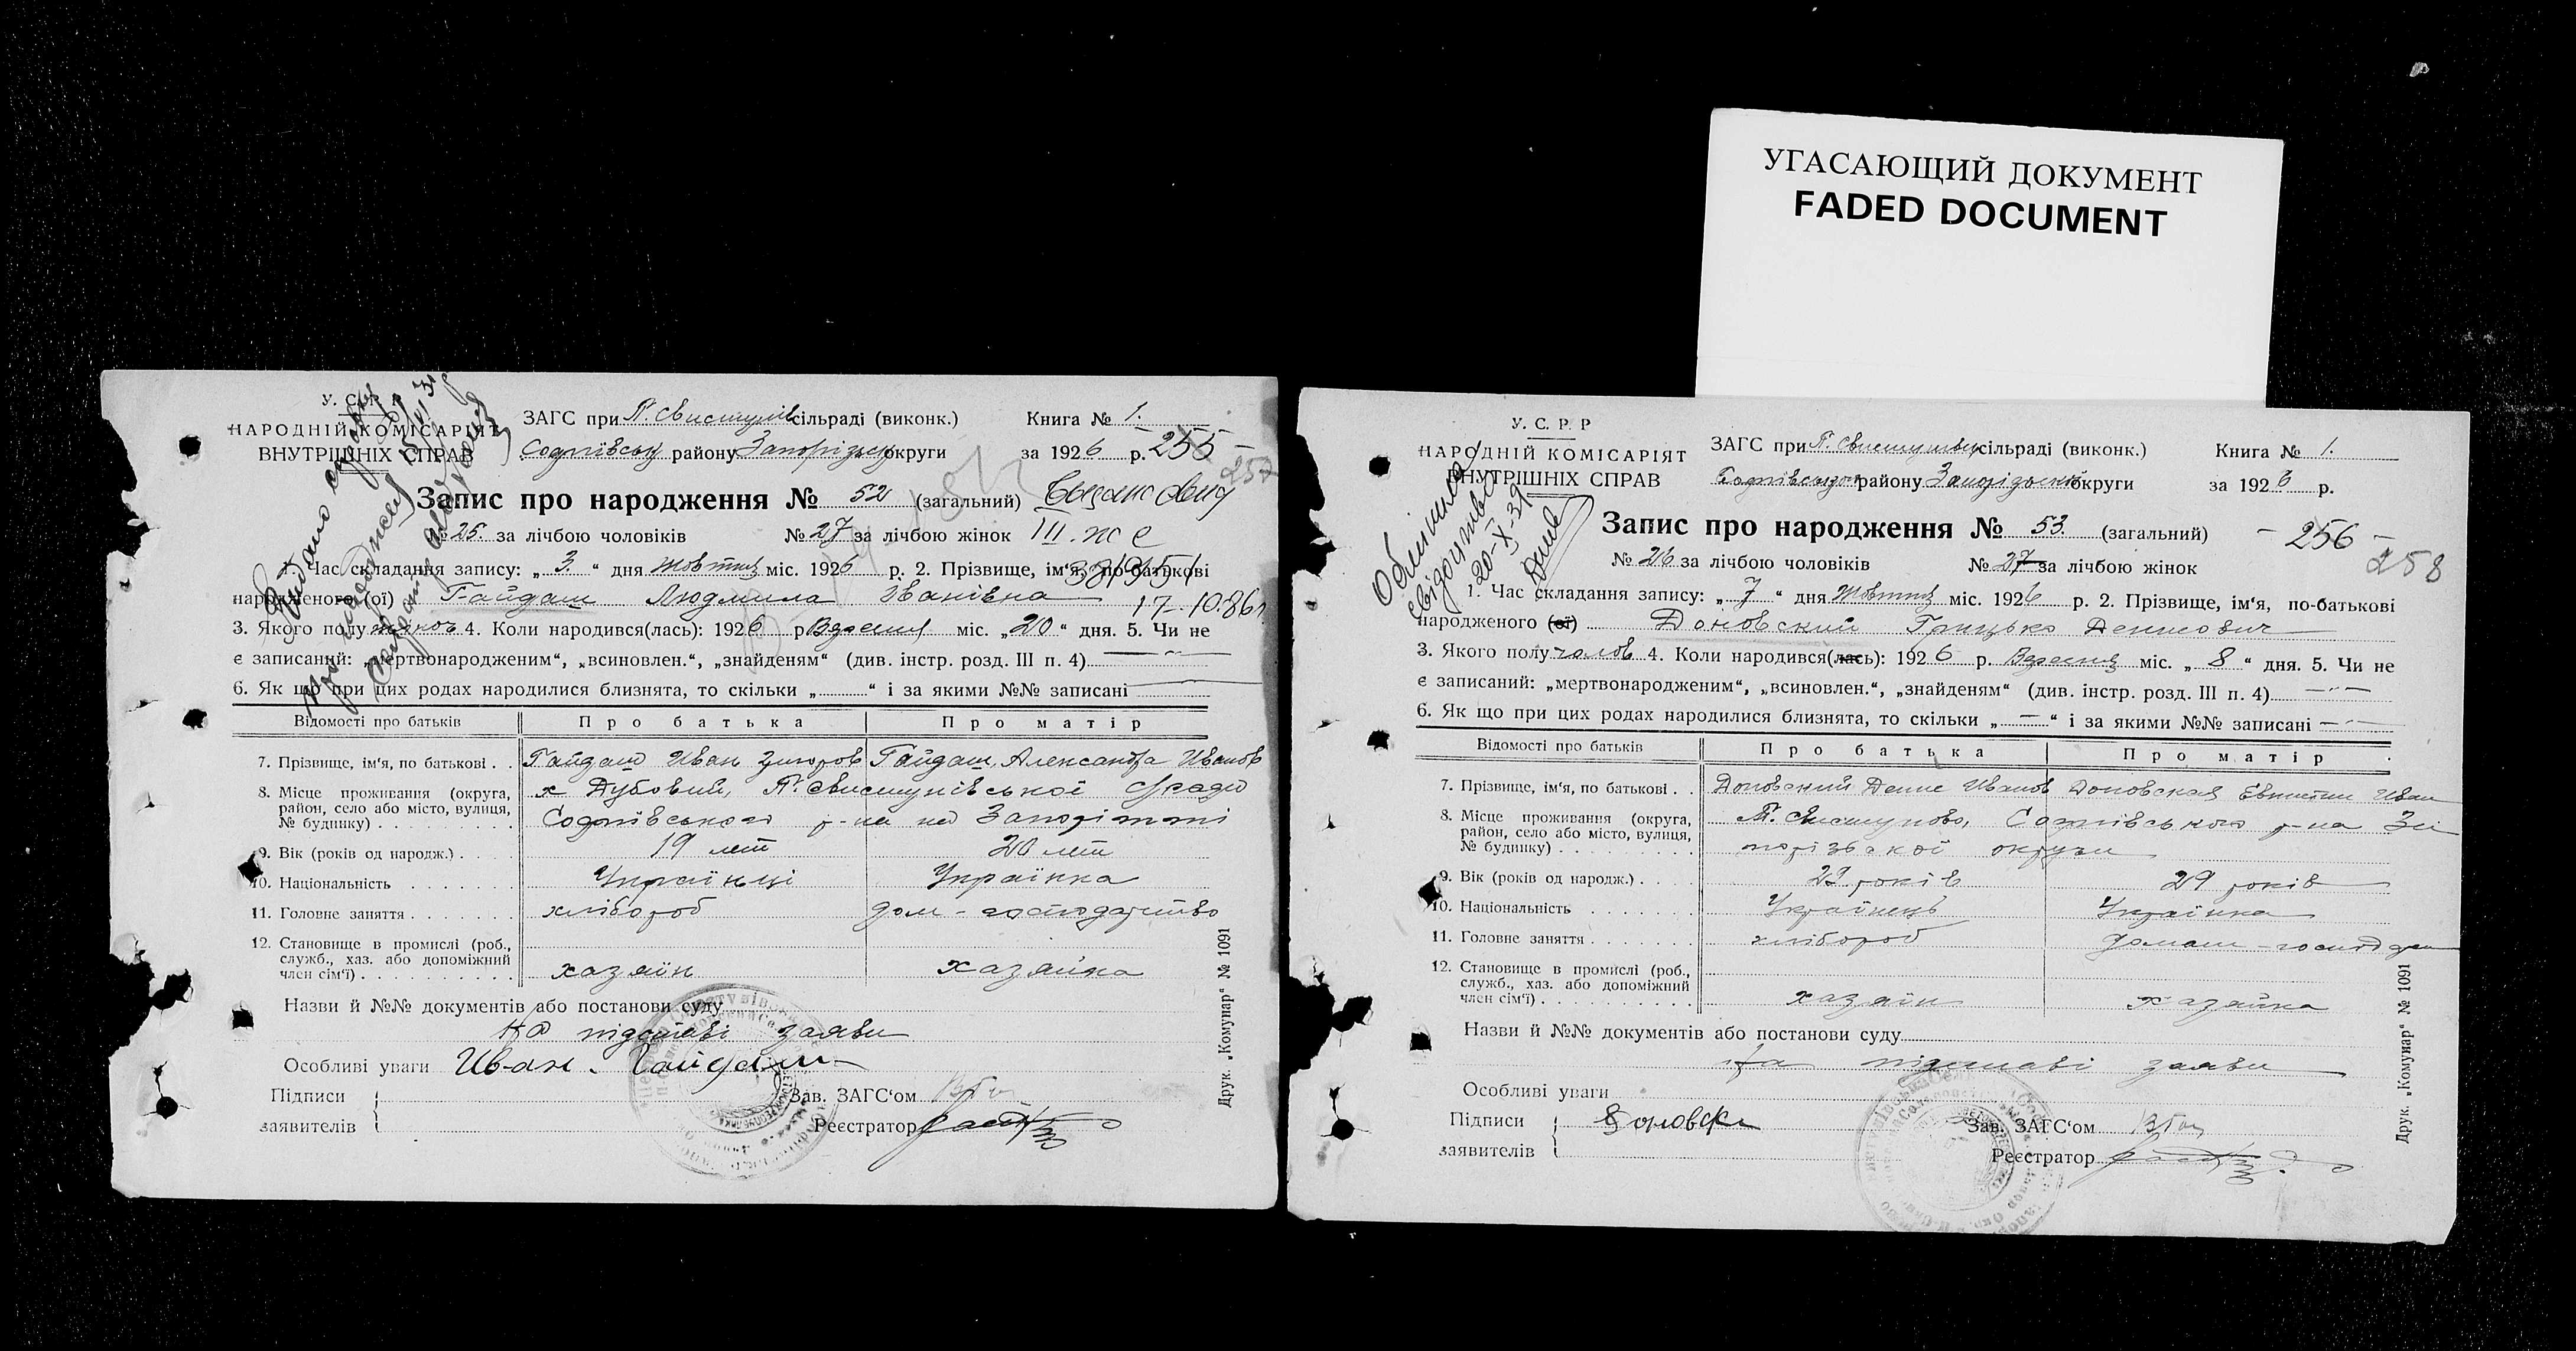 УГАСАЮЩИЙ ДОКУМЕНТ
FADED DOCUMENT
У. С. Р. Р
НАРОДНІЙ КОМІСАРІЯТ
ВНУТРІШНІХ СПРАВ
ЗАГС при П. Свистунів сільраді (виконк.)
Софіївськ району Запорізьк округи
Книга № 1.
за 1926 р. 255
257
Запис про народження № 52 (загальний)
№ 25. за лічбою чоловіків № 27 за лічбою жінок III
1. Час складання запису: „ 3. “ дня Жовтня міс. 1926 р. 2. Прізвище, ім‘я, по-батькові
народженого (ої) Гайдаш Людмила Іванівна 17-10.86
3. Якого полу жіноч 4. Коли народився(лась): 1926 р. Вересня міс. „20“ дня. 5. Чи не
є записаний: „мертвонародженим“, „всиновлен.“, „знайденям“ (див. інстр. розд. III п. 4)
6. Як що при цих родах народилися близнята, то скільки „ “ і за якими №№ записані
Відомості про батьків Про батька Про матір
7. Прізвище, ім‘я, по батькові . . Гайдаш Иван Гайдаш Александра Иванов
8. Місце проживання (округа, район, село або місто, вулиця, № будинку) х Дубовий, П. Свистунівської с/ради
Софіївського р-на на Запоріжжі
9. Вік (років од народж.) 19 лет 20 лет
10. Національність Українці Українка
11. Головне заняття хлібороб дом-господарство
12. Становище в промислі (роб., служб., хаз. або допоміжний член сім‘ї) хазяїн хазяйка
Назви й №№ документів або постанови суду
на підставі заяви
Особливі уваги Иван Гайдаш
Підписи
заявителів
Зав. ЗАГС‘ом
Реєстратор
Друк. „Комунар“ № 1091
У. С. Р. Р
НАРОДНІЙ КОМІСАРІЯТ
ВНУТРІШНІХ СПРАВ
свідоцтво
20-X-39
ЗАГС при П. Свистунівськ сільраді (виконк.)
Софіївського району Запорізької округи
Книга № 1.
за 1926 р.
Запис про народження № 53. (загальний)
- 256 -
258
№ 26 за лічбою чоловіків № 27 за лічбою жінок
1. Час складання запису: „ 7 “ дня Жовтня міс. 1926 р. 2. Прізвище, ім‘я, по-батькові
народженого (ої) Доновский Грицько Денисович
3. Якого полу чолов 4. Коли народився(лась): 1926 р. Вересня міс. „ 8 “ дня. 5. Чи не
є записаний: „мертвонародженим“, „всиновлен.“, „знайденям“ (див. інстр. розд. III п. 4)
6. Як що при цих родах народилися близнята, то скільки „ — “ і за якими №№ записані
Відомості про батьків Про батька Про матір
7. Прізвище, ім‘я, по батькові . . Доновский Денис Иванов Доновская Иван
8. Місце проживання (округа, район, село або місто, вулиця, № будинку) П. Свистуново, Софіївського р-на За
порізької округи
9. Вік (років од народж.) 29 років 29 років
10. Національність Українець Українка
11. Головне заняття хлібороб домаш-господ
12. Становище в промислі (роб., служб., хаз. або допоміжний член сім‘ї) хазяїн хазяйка
Назви й №№ документів або постанови суду
на підставі заяви
Особливі уваги
Підписи
заявителів
Зав. ЗАГС‘ом
Реєстратор
Друк. „Комунар“ № 1091